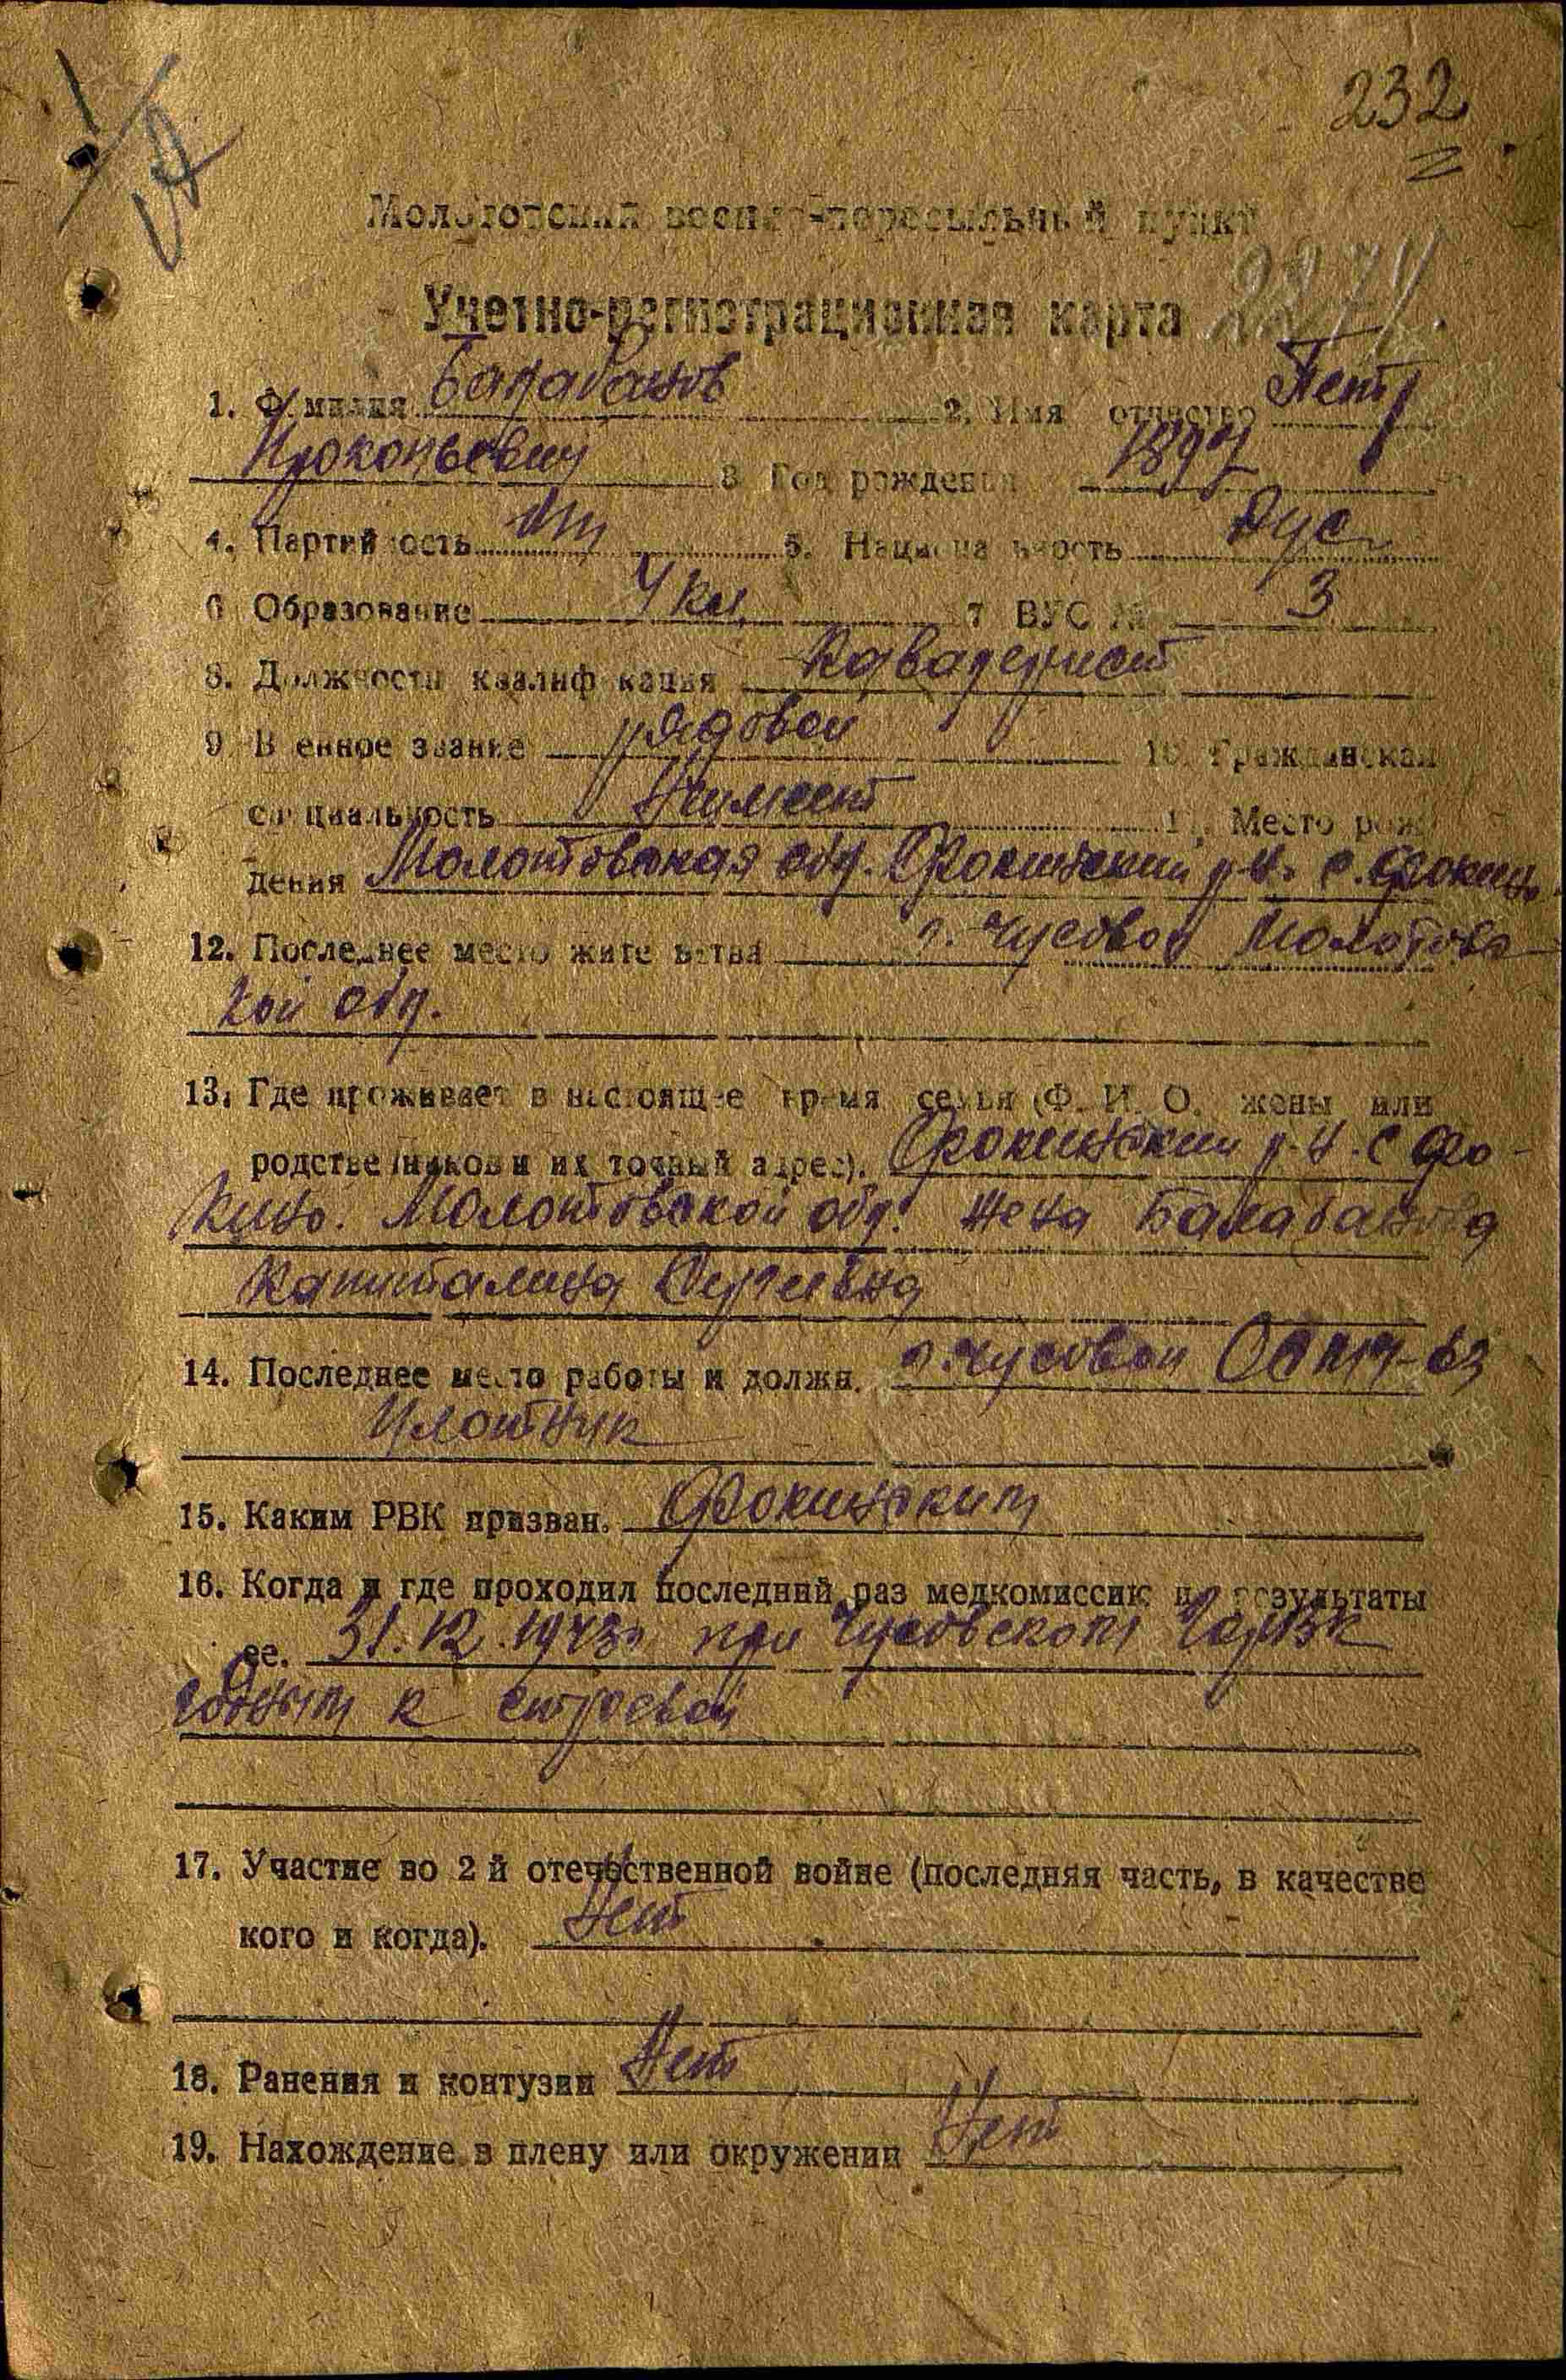 232
Молотовский военно-пересыльный пункт
Учетно-регистрационная карта
1. Фамилия Балабанов 2. Имя отчество Петр
Прокопьевич 3 Год рождения 1897
4. Партийность 5. Национальность Рус
6 Образование 4 кл. 7 ВУС № 3
8. Должности квалификация Кавалерист
9 Военное звание рядовой 10. Гражданская
специальность 11. Место рож
дения Молотовская обл. Фокинский р-н. с. Фокино
12. Последнее место жительства г. Чусовой Молотовс
кой обл.
13. Где проживает в настоящее время семья (Ф. И. О. жены или
родственников и их точный адрес). Фокинский р-н. с Фо-
кино. Молотовской обл. Жена Балабанова
Капиталина Сергеевна
14. Последнее место работы и должн. г. Чусовой 63
Плотник
15. Каким РВК призван. Фокинским
16. Когда и где проходил последний раз медкомиссию и результаты
ее. 31.12.1943г при Чусовском ГорВК
годным к строевой
17. Участие во 2 й отечественной войне (последняя часть, в качестве
кого и когда). Нет
18. Ранения и контузии Нет
19. Нахождение в плену или окружении Нет